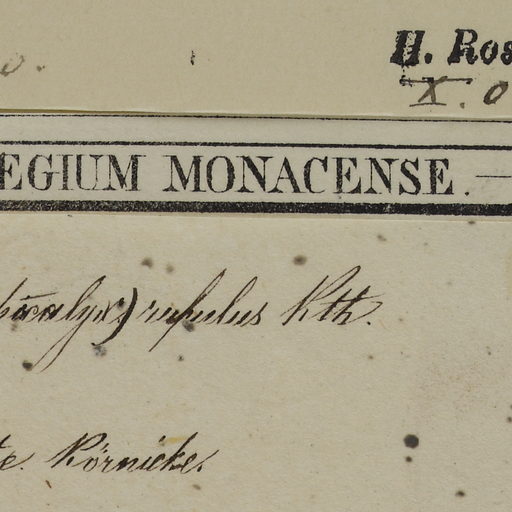 H. Ros
o. X. o
EGIUM MONACENSE.
calyx) rufulus Kth.
te. Körnicke.